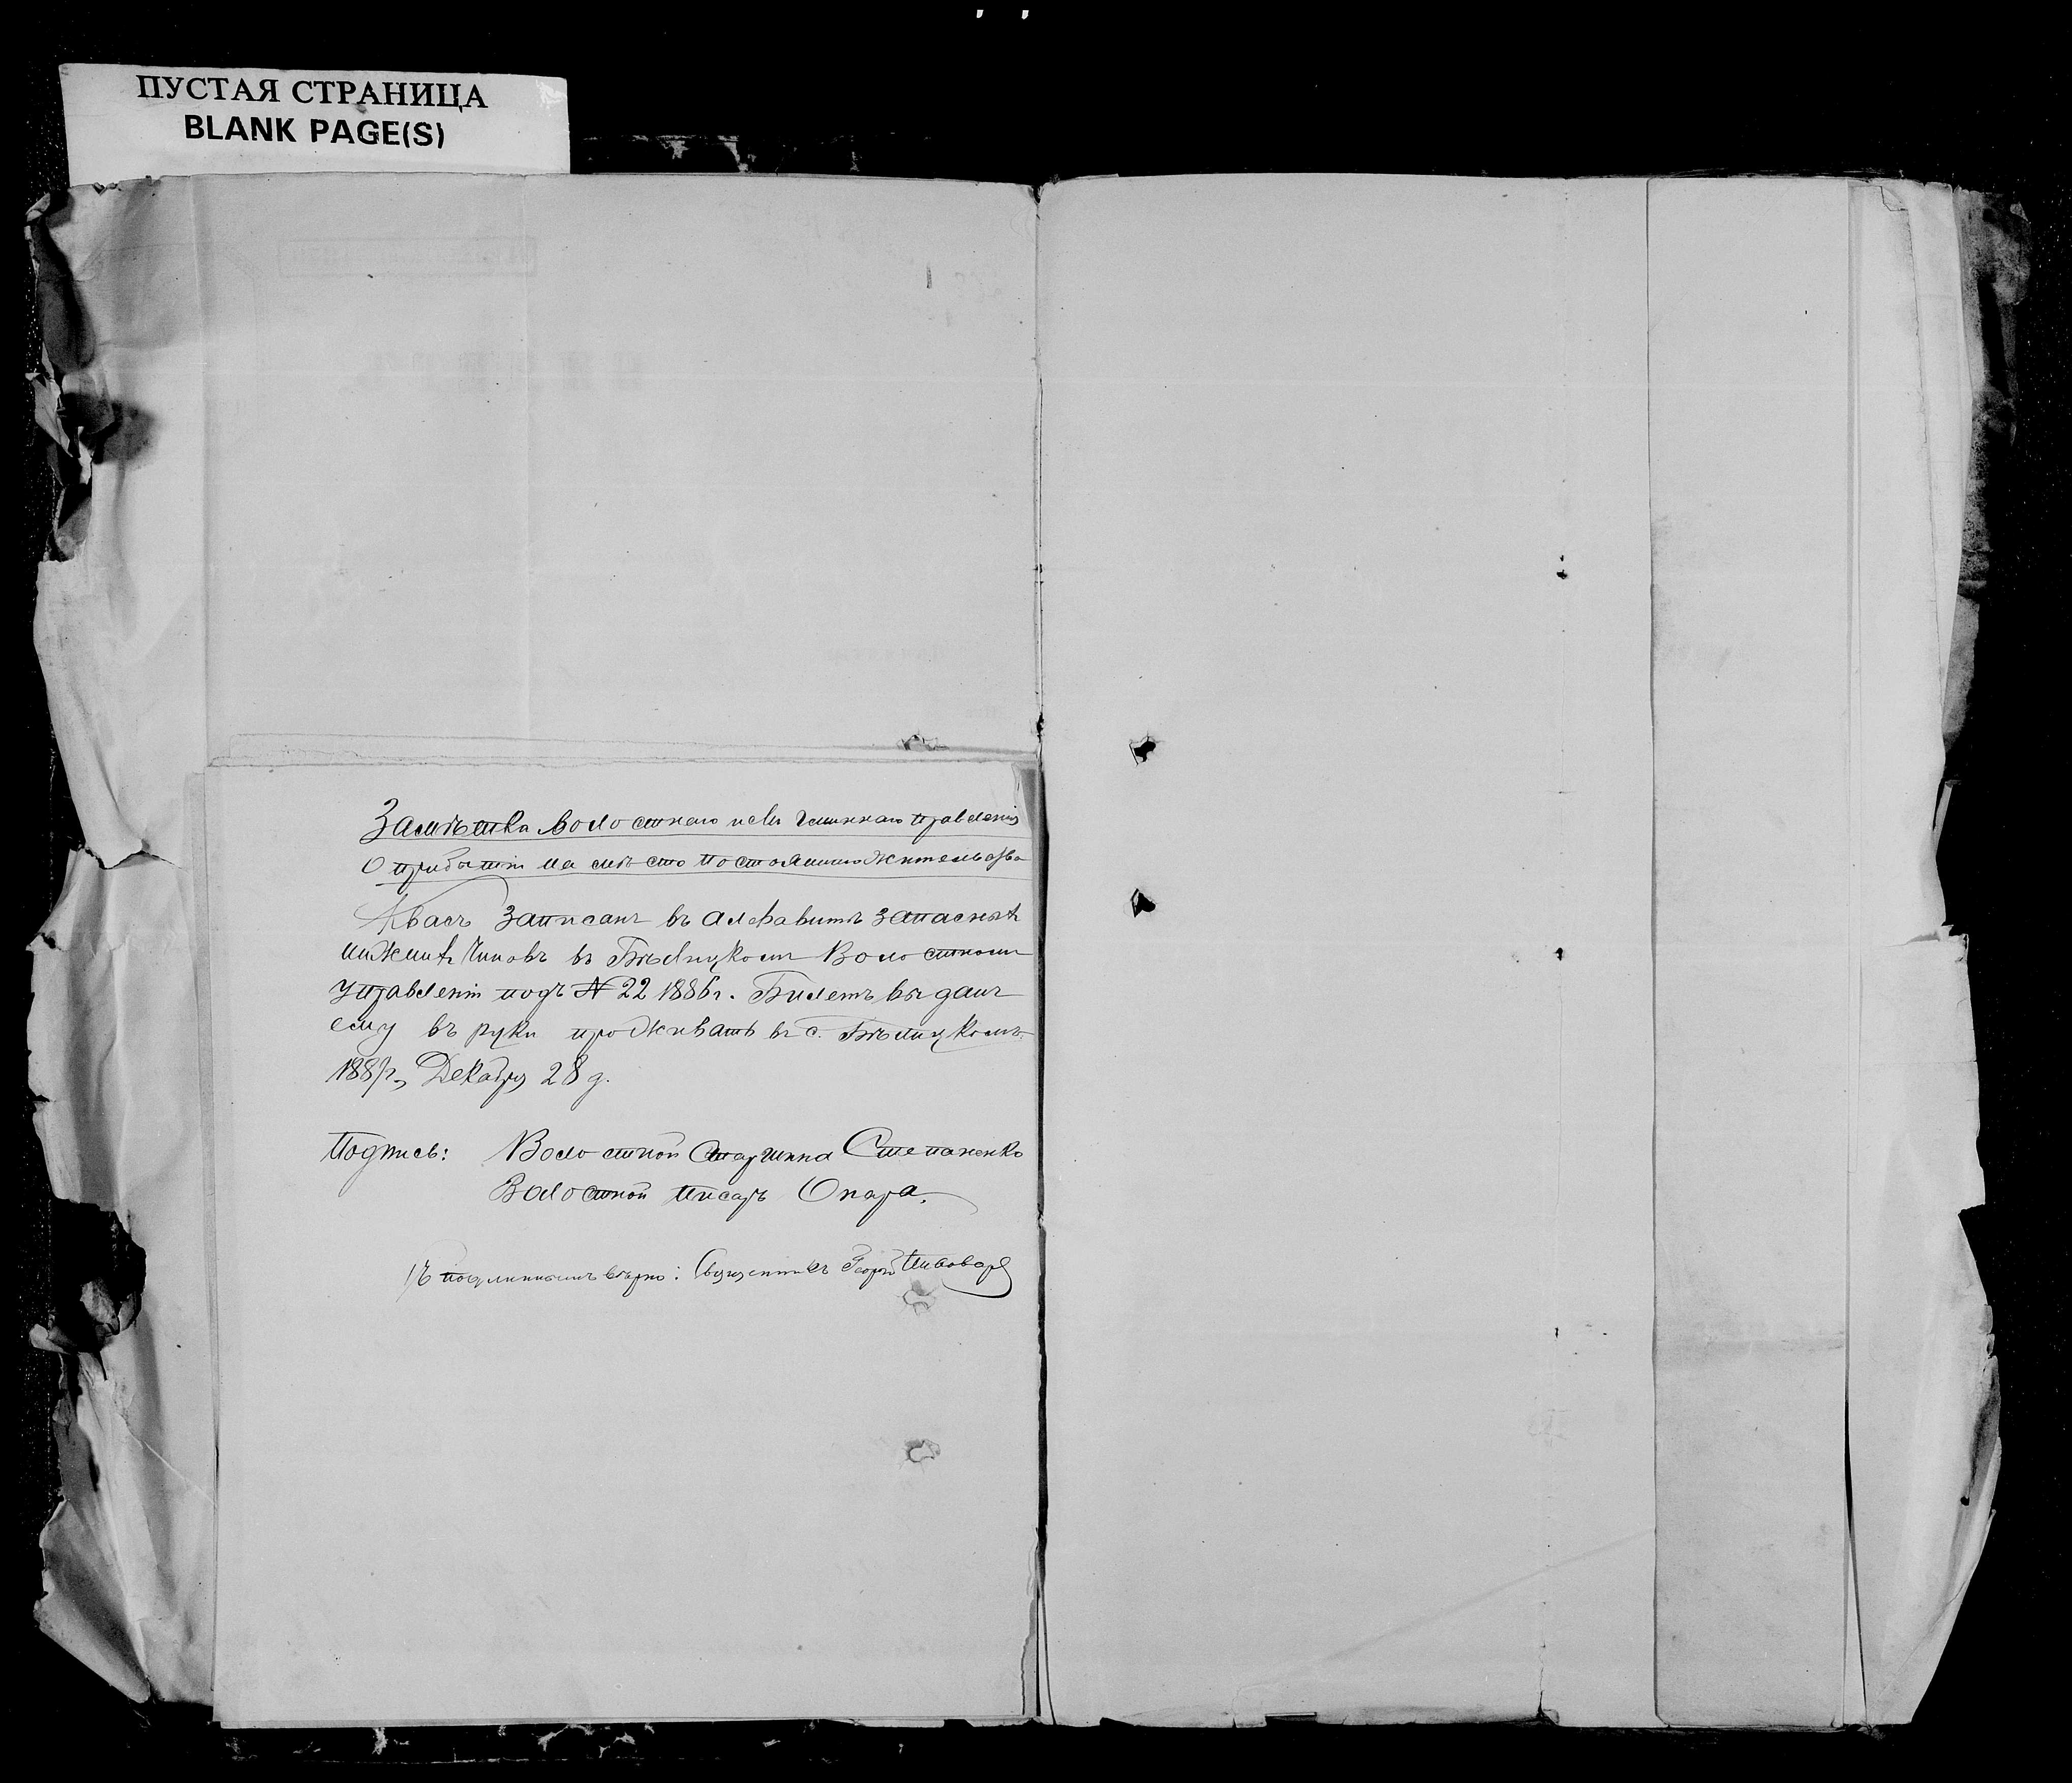 ПУСТАЯ СТРАНИЦА
BLANK PAGE(S)
Замѣтка волостнаго или Гминнаго правленія
о прибытіи на мѣсто постояннаго жительства
Квасъ Записанъ въ алфавитъ запасныхъ
нижнихъ Чиновъ въ Бѣлицкомъ Волостномъ
управленіи подъ № 22 1886 г. Билетъ выданъ
ему въ руки проживать въ с. Бѣлицкомъ
188 г., Декабря 28 д.
Подпись: Волостной Старшина Степаненко
Волостной писарь Опара.
Съ подлиннымъ вѣрно: Священникъ Георгій Пивоваръ